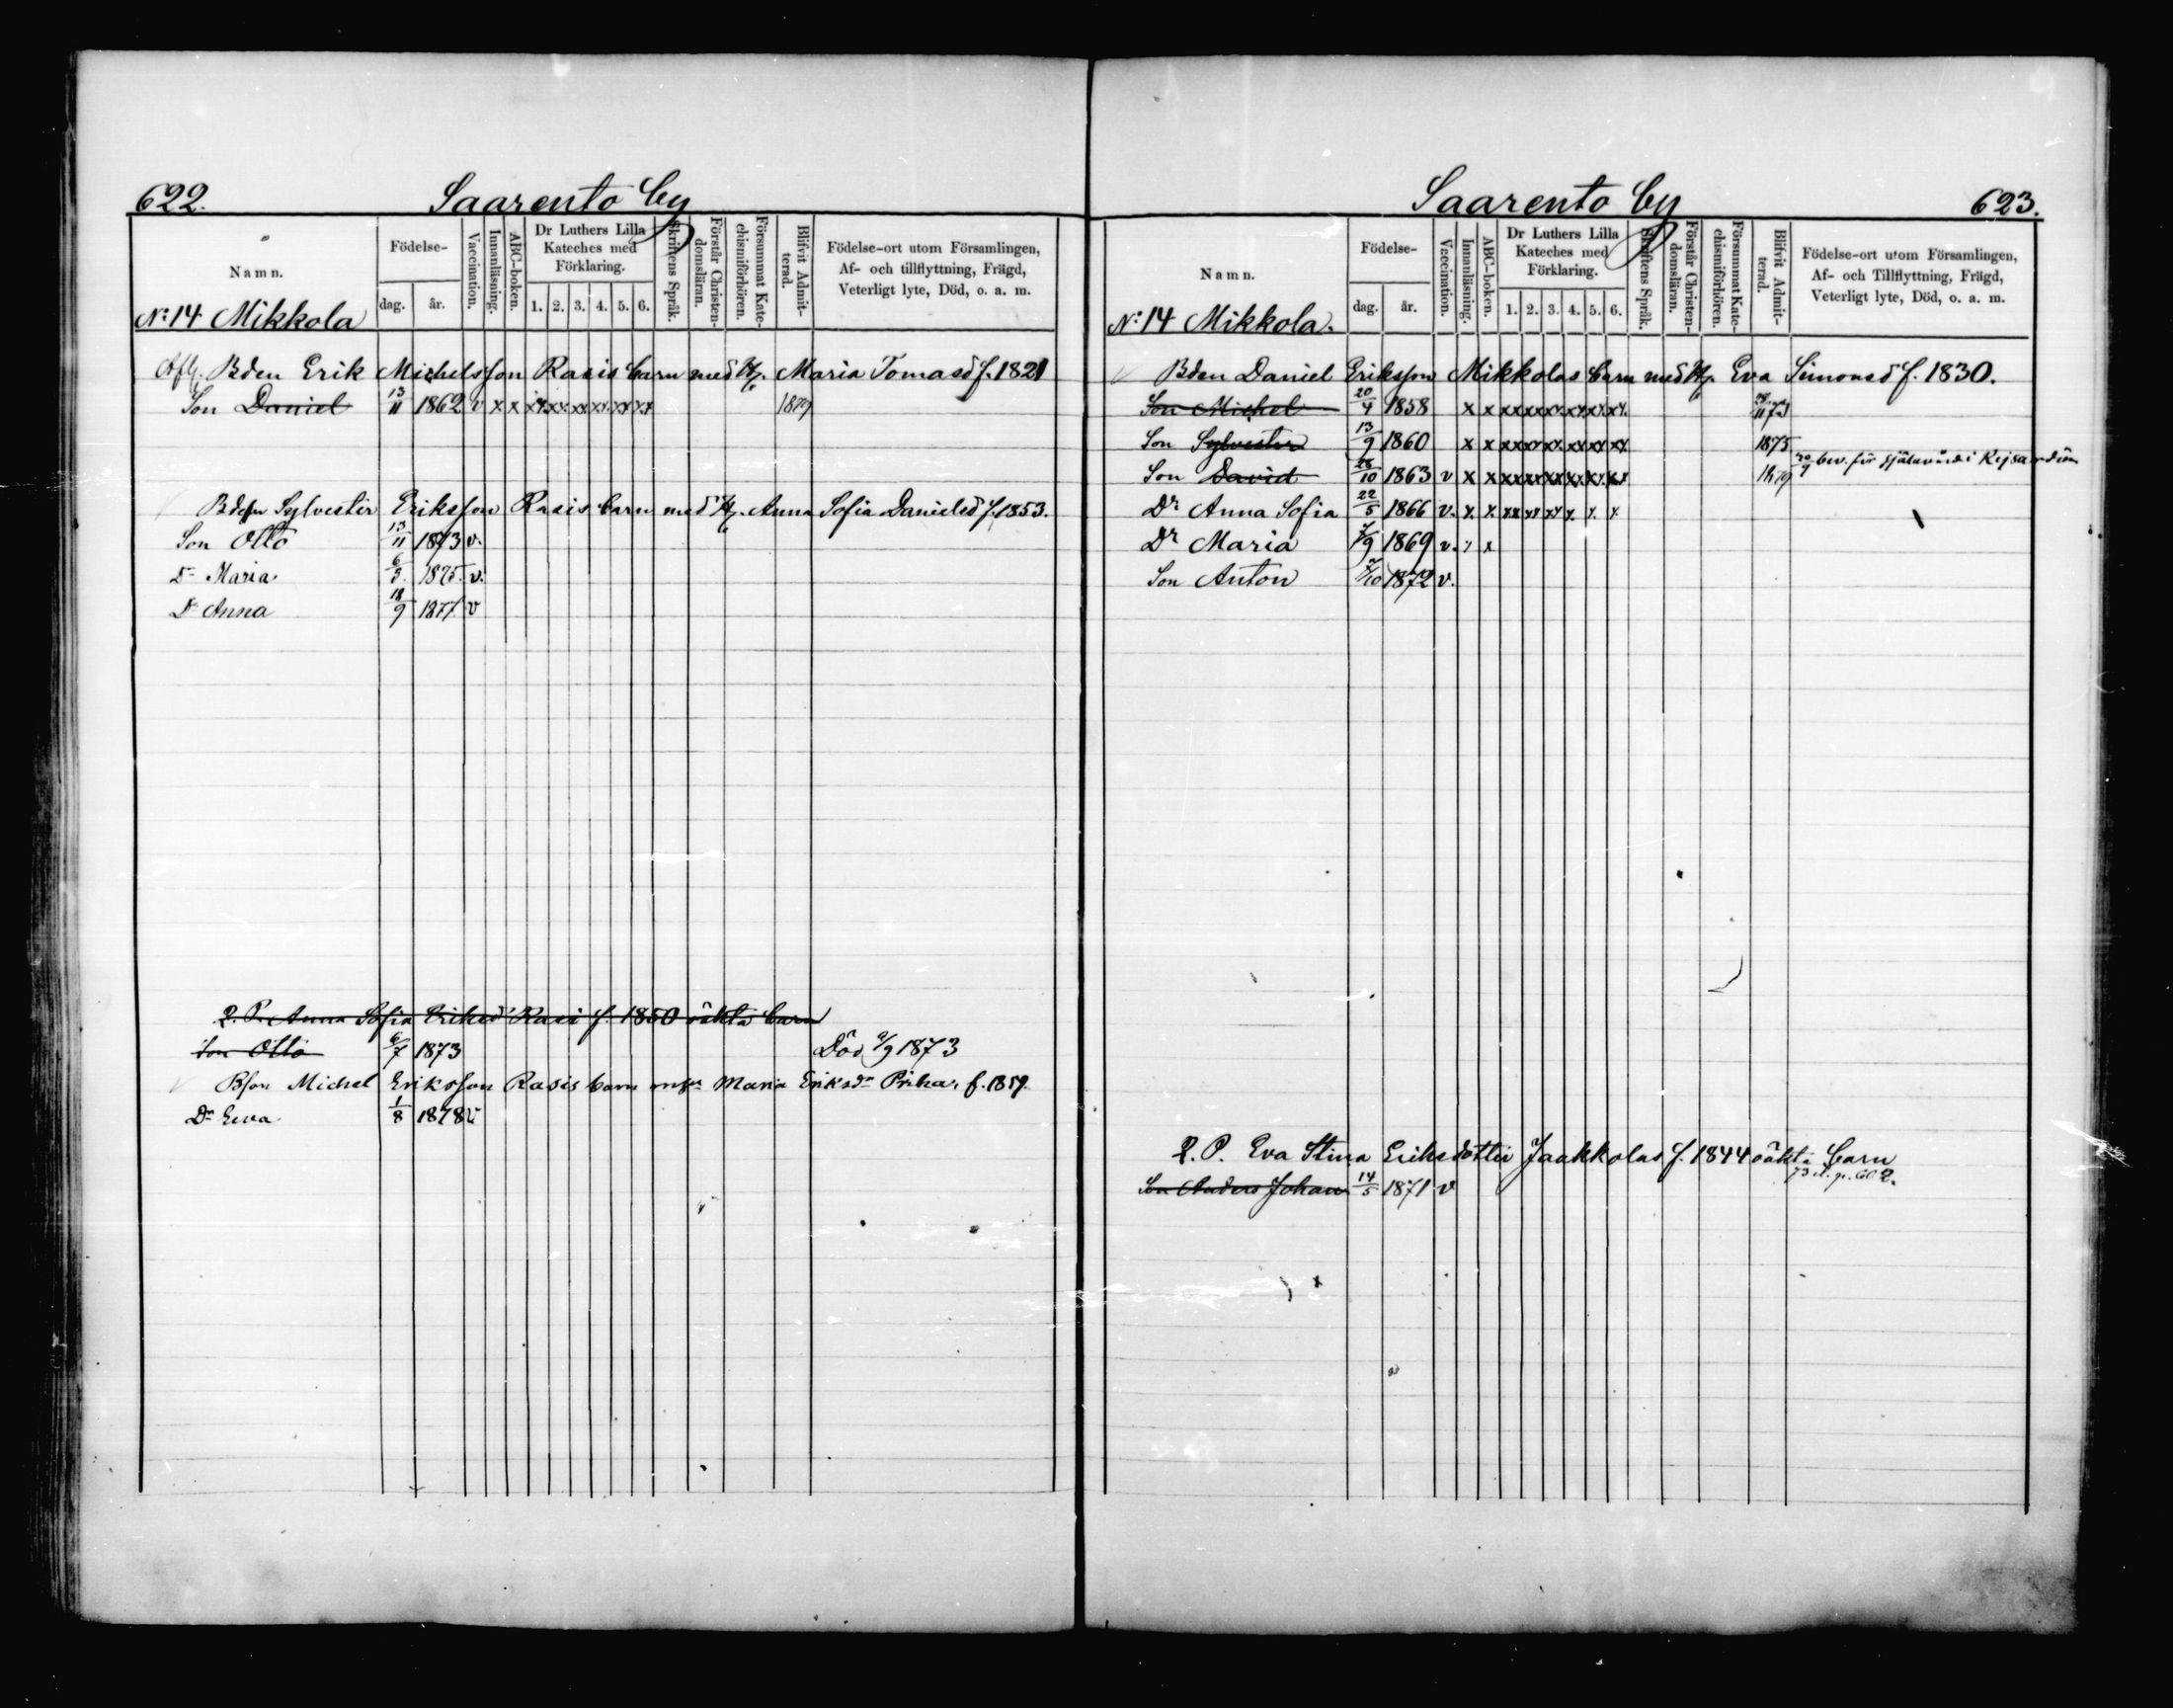 622. Saarento by
Namn. Födelse- dag. år. Vaccination. Innanläsning. ABC-boken. Dr Luthers Lilla Kateches med Förklaring. 1. 2. 3. 4. 5. 6. Skriftens Språk. Förstår Christendomsläran. Försummat Katechismiförhören. Blifvit Admitterad. Födelse-ort utom Församlingen, Af- och tillflyttning, Frägd, Veterligt lyte, Död, o. a. m.
N:14 Mikkola
Afl. Bden Erik Michelsson Rasis barn med H. Maria Tomasd f. 1821
Son Daniel 13/11 1862 v x x xx xx xx xx xx xx 1879
Bdsn Sylvester Eriksson Rasis barn med H. Anna Sofia Danielsd f. 1853.
Son Otto 13/11 1873 v.
Dr Maria 6/9. 1875. v.
Dr Anna 18/9 1877. v
Q. P. Anna Sofia Eriksd Rasi f. 1850 oäkta barn
Son Otto 6/7 1873 Död 9/9 1873
Bson Michel Eriksson Rasis barn Maria Eriksdr f. 1859.
Dr Eeva 1/8 1878 v
Saarento by 623.
Namn. Födelse- dag. år. Vaccination. Innanläsning. ABC-boken. Dr Luthers Lilla Kateches med Förklaring. 1. 2. 3. 4. 5. 6. Skriftens Språk. Förstår Christendomsläran. Försummat Katechismiförhören. Blifvit Admitterad. Födelse-ort utom Församlingen, Af- och Tillflyttning, Frägd, Veterligt lyte, Död, o. a. m.
N:14 Mikkola.
Bden Daniel Eriksson Mikkolas barn med H. Eva Simonsd f. 1830.
Son Michel 20/4 1858 x x xx xx xx xx xx xx.
Son Sylvester 13/9 1860 x x xx xx xx xx xx xx 1875
Son David 28/10 1863 v x x xx xx xx xx xx xx 1879 bev. för själavård i
Dr Anna Sofia 22/5 1866 v. x. x. xx xx xx x. x. x
Dr Maria 1869 v. x x
Son Anton 1872 v.
Q. P. Eva Stina Eriksdotter Jaakkolas f. 1844 oäkta barn
Son Anders Johan 14/5 1871 v 73 p. 602.